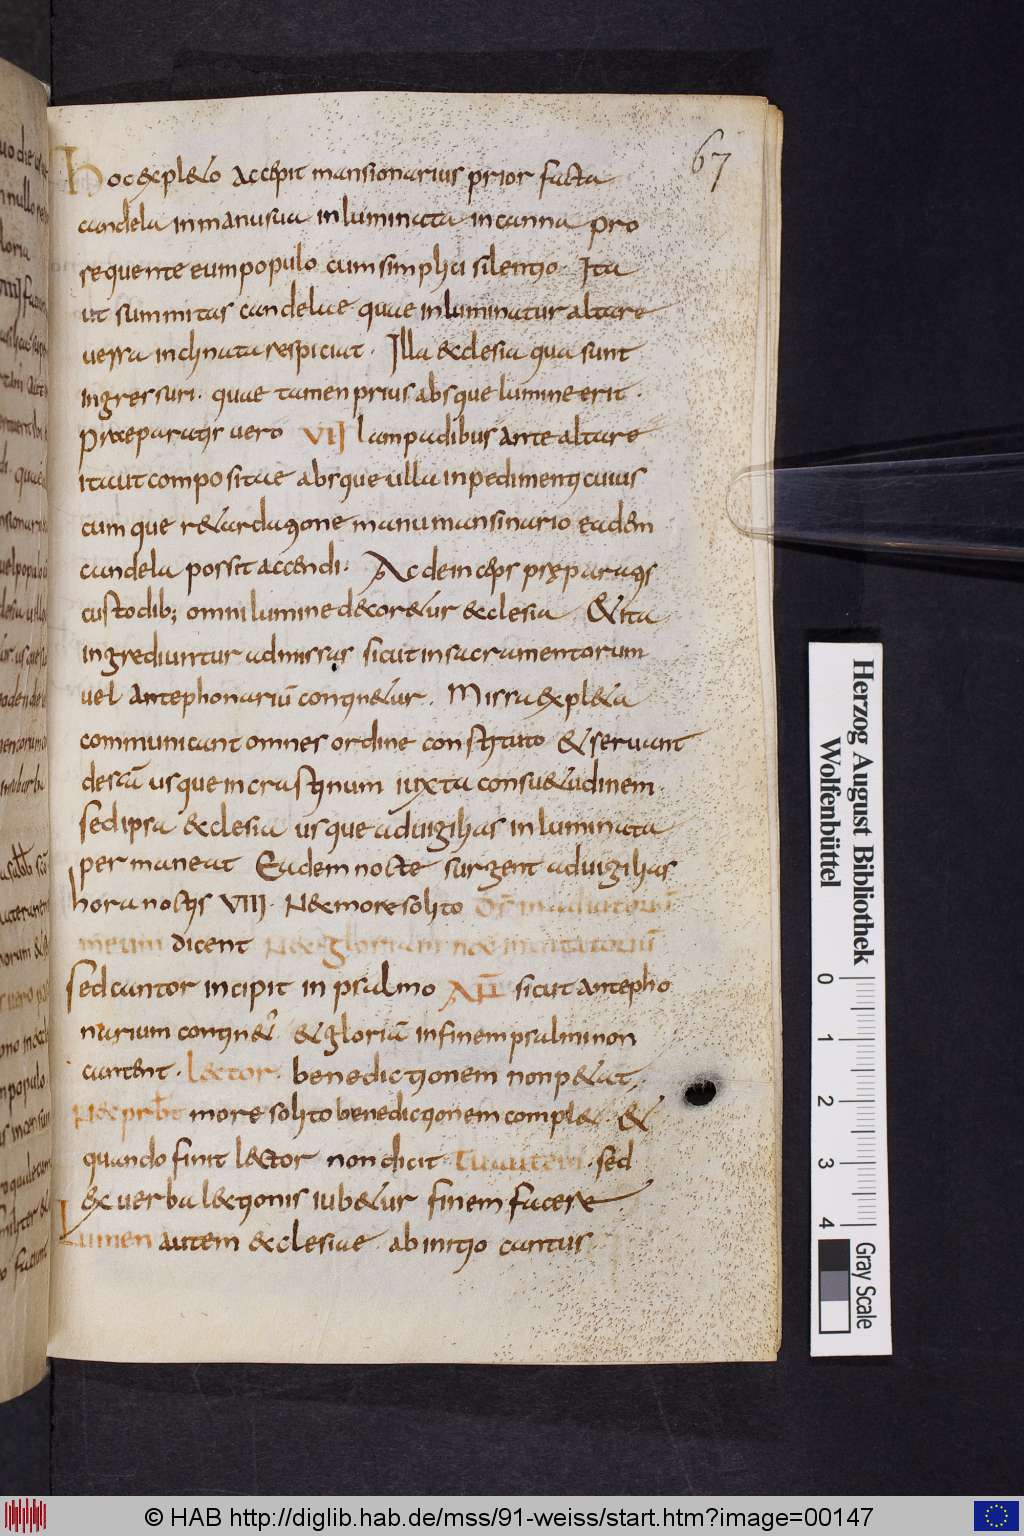 67
Hoc expleto accepit mansionarius prior facta
candela in manu sua inluminata in canna pro
sequente eum populo cum simplici silentio. Ita
ut summitas candelae quae inluminatur altare
uersa inclinata respiciat. Illa ecclesia qua sunt
ingressuri. quae tamen prius absque lumine erit.
Praeparatis uero VII lampadibus ante altare
ita ut compositae absque ulla inpedimenti cuius
cumque retardatione manu mansinario eadem
candela possit accendi. Ac deinceps pręparatis
custodib; omni lumine decoretur ecclesia. & ita
ingrediuntur ad missas sicut in sacramentorum
uel antephonariū continetur. Missa expleta
communicant omnes ordine constituto & seruant
de scā usque in crastinum iuxta consuetudinem.
Sed ipsa ecclesia usque ad uigilias inluminata
permaneat Eadem nocte surgent ad uigilias
hora noctis VIIII. Nec more solito Ds̄ in adiutoriū
meum dicent Nec gloriam nec inuitatoriū
Sed cantor incipit in psalmo AN̄ sicut antepho
narium continet & gloriā in finem psalmi non
cantent. lector. benedictionem non petat.
Nec prbt more solito benedictionem complet. &
quando finit lector non dicit Tu autem. sed
ex uerba lectionis iubetur finem facere.
Lumen autem ecclesiae ab initio cantus
Herzog August Bibliothek
Wolfenbüttel
0 1 2 3 4
Gray Scale
© HAB http://diglib.hab.de/mss/91-weiss/start.htm?image=00147